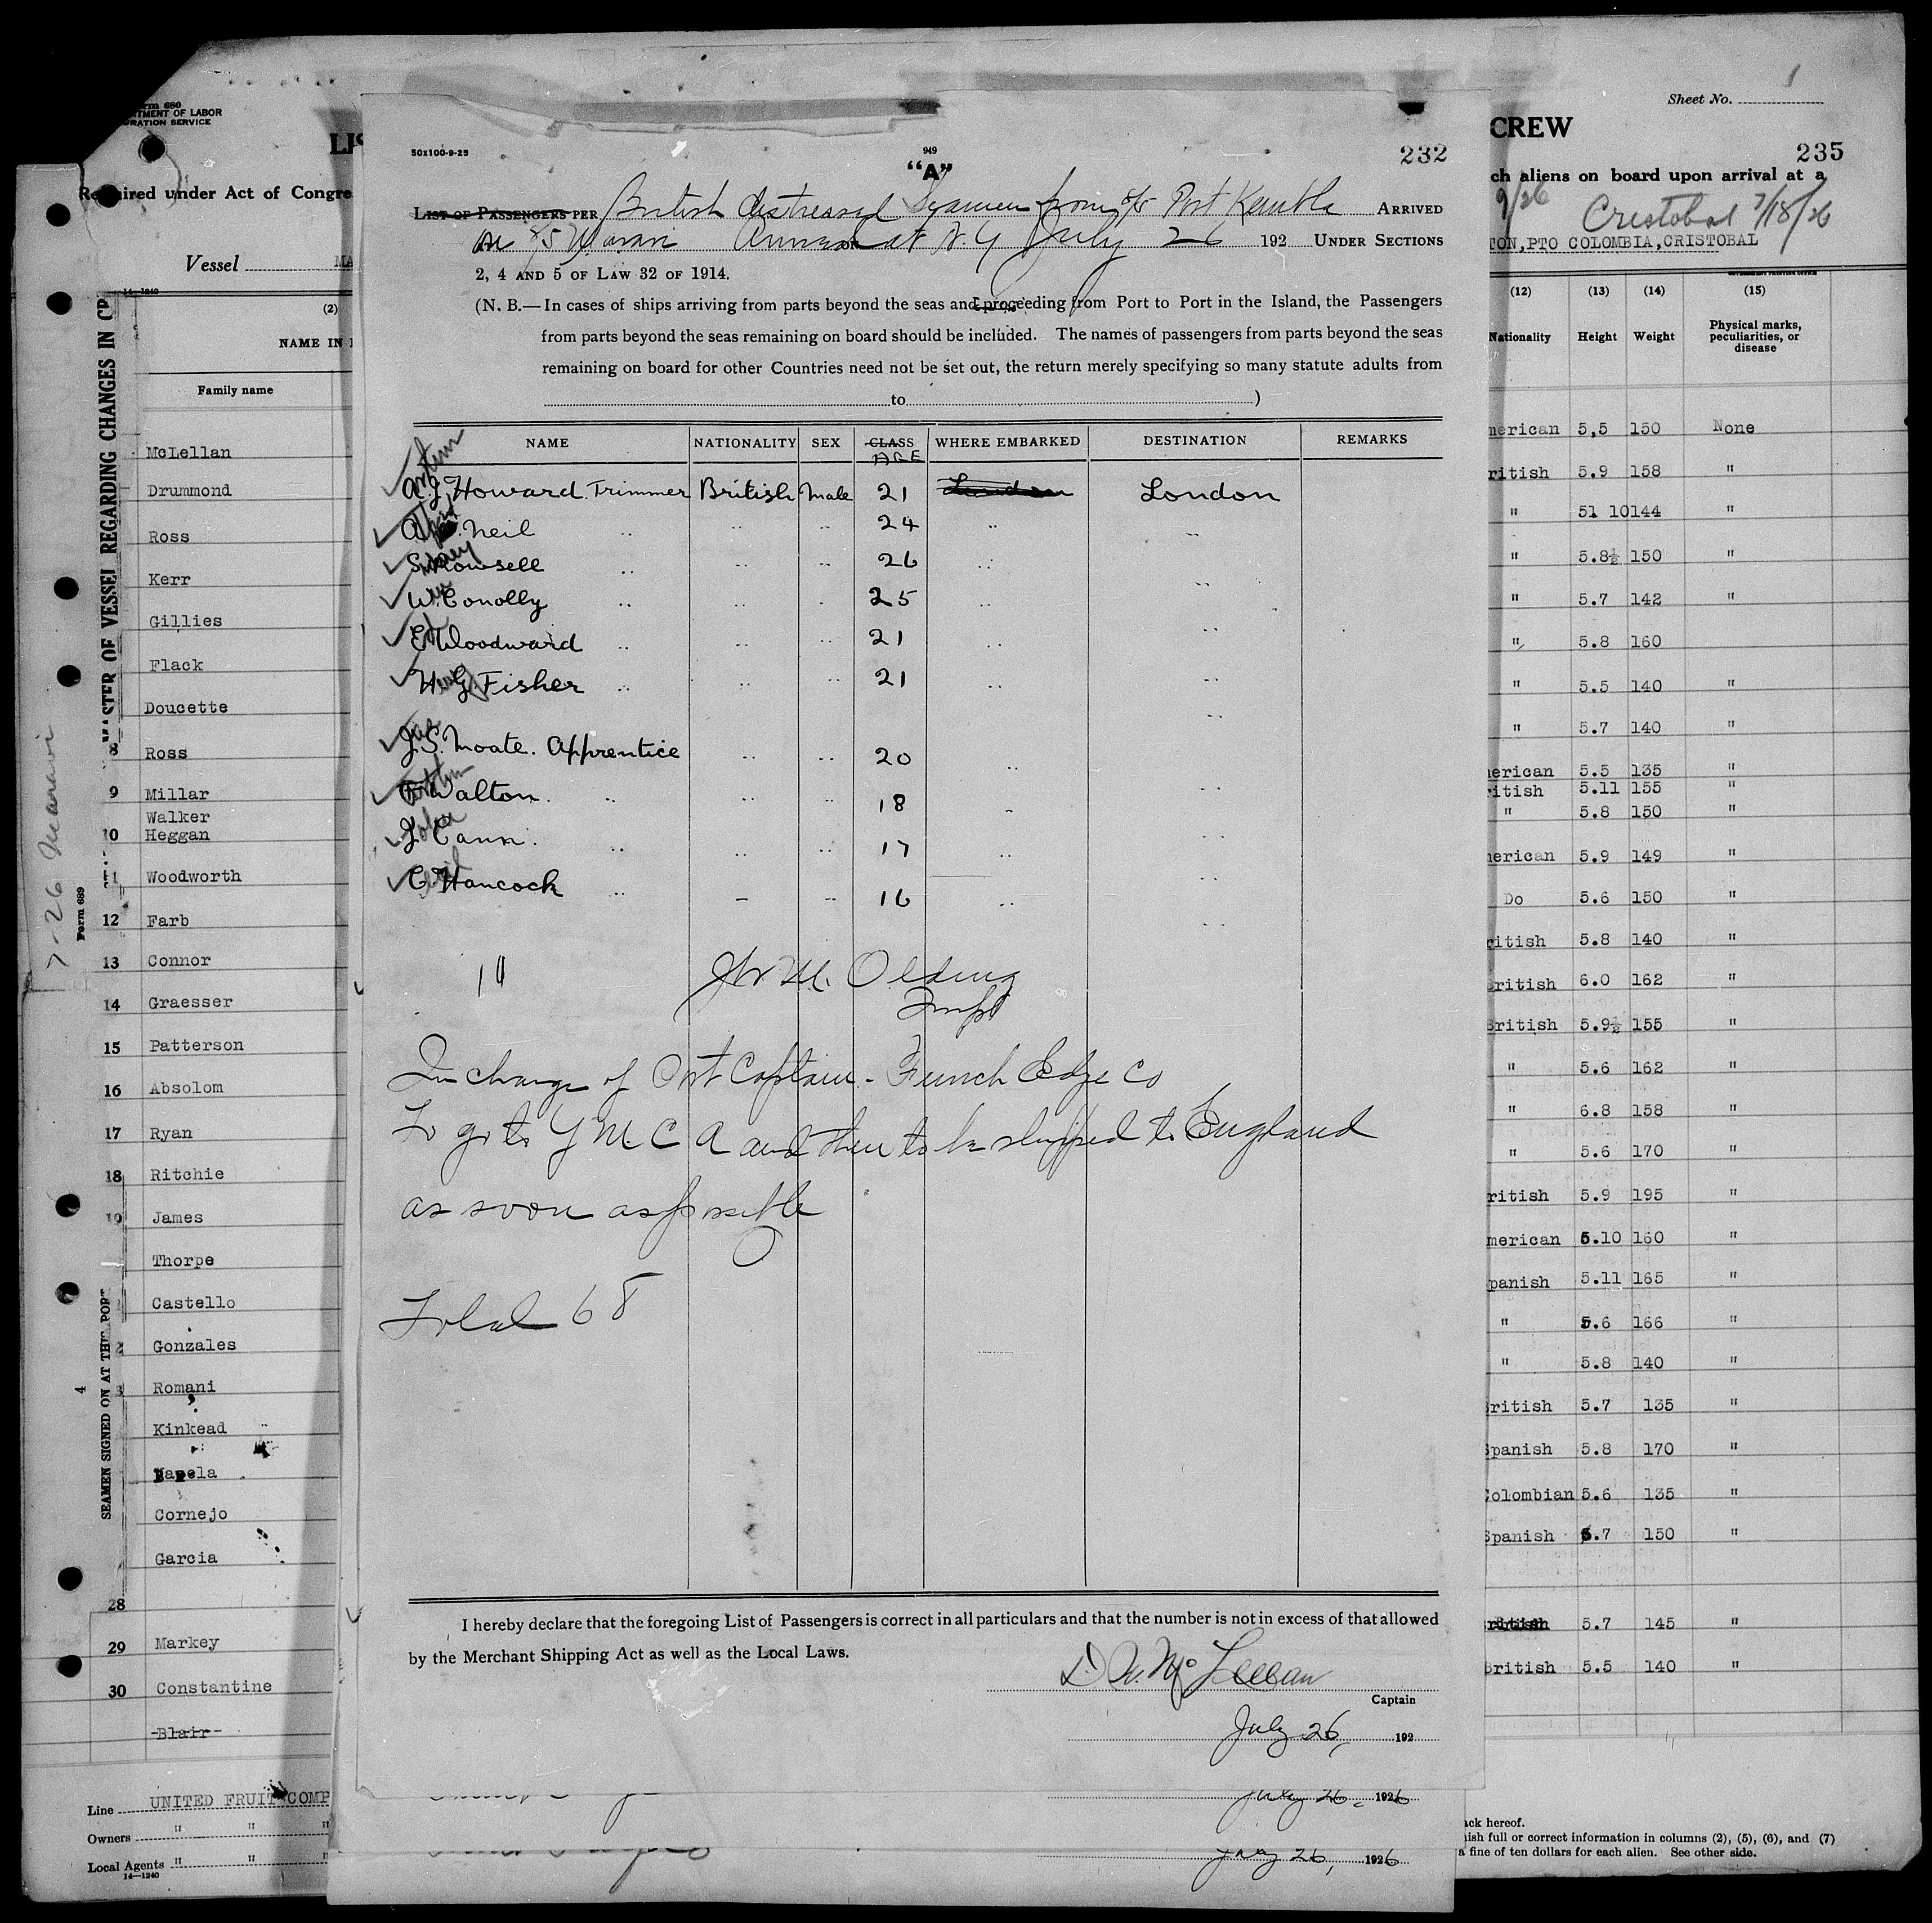 Form 680
TMENT OF LABOR
RATION SERVICE
Sheet No.
CREW
235
Required under Act of Congre
ch aliens on board upon arrival at a
9/26 Cristobal 7/18/26
TON, PTO COLOMBIA, CRISTOBAL
Vessel MA
14-1240
(2)
NAME IN
Family name
MASTER OF VESSEL REGARDING CHANGES IN
SEAMEN SIGNED ON AT THE PORT
7-26
Form 689
4
McLellan
Drummond
Ross
Kerr
Gillies
Flack
Doucette
8 Ross
9 Millar
Walker
10 Heggan
11 Woodworth
12 Farb
13 Connor
14 Graesser
15 Patterson
16 Absolom
17 Ryan
18 Ritchie
19 James
Thorpe
Castello
2 Gonzales
3 Romani
Kinkead
Cornejo
Garcia
28
29 Markey
30 Constantine
Blair
Line UNITED FRUIT COMP
Owners " " "
Local Agents " " "
14-1240
50X100-9-25
949
232
"A"
LIST OF PASSENGERS PER British distressed Seamen from s/s Port Kembla ARRIVED
Arrived at N.Y July 26 192 UNDER SECTIONS
2, 4 AND 5 OF LAW 32 OF 1914.
(N. B.—In cases of ships arriving from parts beyond the seas and proceeding from Port to Port in the Island, the Passengers
from parts beyond the seas remaining on board should be included. The names of passengers from parts beyond the seas
remaining on board for other Countries need not be set out, the return merely specifying so many statute adults from
to )
NAME NATIONALITY SEX CLASS AGE WHERE EMBARKED DESTINATION REMARKS
A.J. Howard. Trimmer British Male 21 London London
A. Neil .. .. .. 24 .. ..
S. Mowsell .. .. .. 26 .. ..
W. Conolly .. .. . 25 .. ..
E. Woodward .. .. .. 21 .. ..
H.G. Fisher .. .. .. 21 .. ..
J.S. Moate. Apprentice .. .. 20 .. ..
F. Walton. .. .. .. 18 .. ..
J. Cann. .. .. .. 17 .. ..
C. Hancock .. – .. 16 .. ..
M. Olding
Insp
In charge of Port Captain - Funch Edye Co
To go to Y M C A and then to be shipped to England
as soon as possible
Total 68
I hereby declare that the foregoing List of Passengers is correct in all particulars and that the number is not in excess of that allowed
by the Merchant Shipping Act as well as the Local Laws.
D. W. McLellan
Captain
July 26, 192
July 26, 1926
July 26, 1926
(12) (13) (14) (15)
Nationality Height Weight Physical marks, peculiarities, or disease
merican 5,5 150 None
ritish 5.9 158 "
" 51 10 144 "
" 5.8½ 150 "
" 5.7 142 "
" 5.8 160
" 5.5 140 "
" 5.7 140 "
merican 5.5 135 "
ritish 5.11 155 "
" 5.8 150 "
merican 5.9 149 "
Do 5.6 150 "
ritish 5.8 140 "
British 6.0 162 "
British 5.9½ 155 "
" 5.6 162 "
" 6.8 158 "
" 5.6 170 "
ritish 5.9 195 "
merican 5.10 160 "
panish 5.11 165 "
" 5.6 166 "
" 5.8 140 "
British 5.7 135 "
Spanish 5.8 170 "
Colombian 5.6 135 "
Spanish 5.7 150 "
British 5.7 145 "
British 5.5 140 "
ack hereof.
nish full or correct information in columns (2), (5), (6), and (7)
a fine of ten dollars for each alien. See other side.